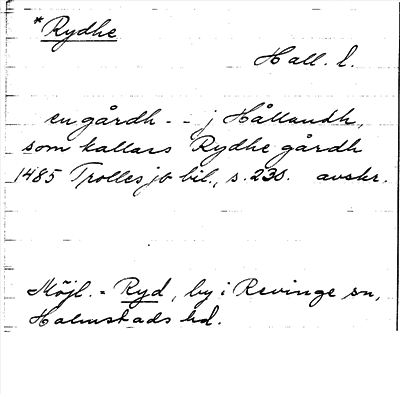 *Rydhe
Hall. l.
en gårdh - - j Hållandh,
som kallas Rydhe gårdh
1485 Trolles jb bil., s. 230. avskr.
Möjl. = Ryd, by i Revinge sn,
Halmstads hd.